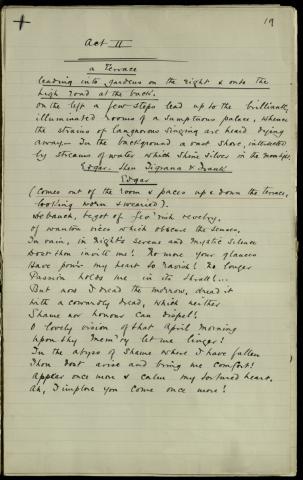 19
Act II
a Terrace
leading into gardens on the right & onto the
high road at the back.
On the left a few steps lead up to the brilliantly
illuminated rooms of a sumptuous palace, whence
the strains of languorous singing are heard dying
away. In the background a vast shore, intersected
by streams of water which shine silver in the moonlight.
Edgar. then Tigrana & Frank
Edgar
(Comes out of the room & paces up & down the terrace,
looking worn & wearied).
Debauch, begot of fev'rish revelry,
of wanton vices which obscure the senses,
In vain, in night's serene and mystic silence
Dost thou invite me! No more your glances
Have pow'r my heart to ravish! No longer
Passion holds me in its thrall!...
But now I dread the morrow, dread it
with a cowardly dread, which neither
Shame nor honour can dispel!
O lovely vision of that April morning
Upon thy mem'ry let me linger!
In the abyss of shame where I have fallen
Thou dost arise and bring me comfort!
Appear once more & calm my tortured heart.
Ah, I implore you come once more!